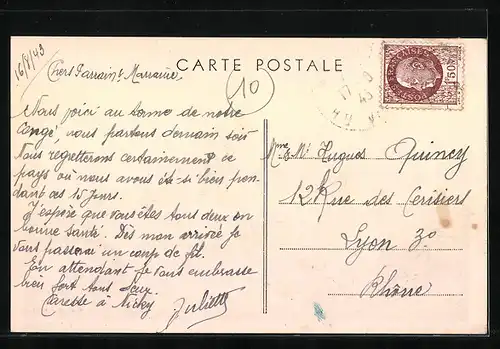 16/8/43
Chers Parrain & Marraine
CARTE POSTALE
10
Nous voici au terme de notre
congé, nous partons demain soir
Nous regretterons certainement ce
pays où nous avons été si bien pen-
dant ces 15 jours.
J'espère que vous êtes tous deux en
bonne santé. Dès mon arrivée je
vous passerai un coup de fil.
En attendant je vous embrasse
bien fort tous deux
Caresse à Nicky
Juliette
Mme & Mr Hugues Quincy
12 Rue des Cerisiers
Lyon 3o
Rhône
17
43
1F50